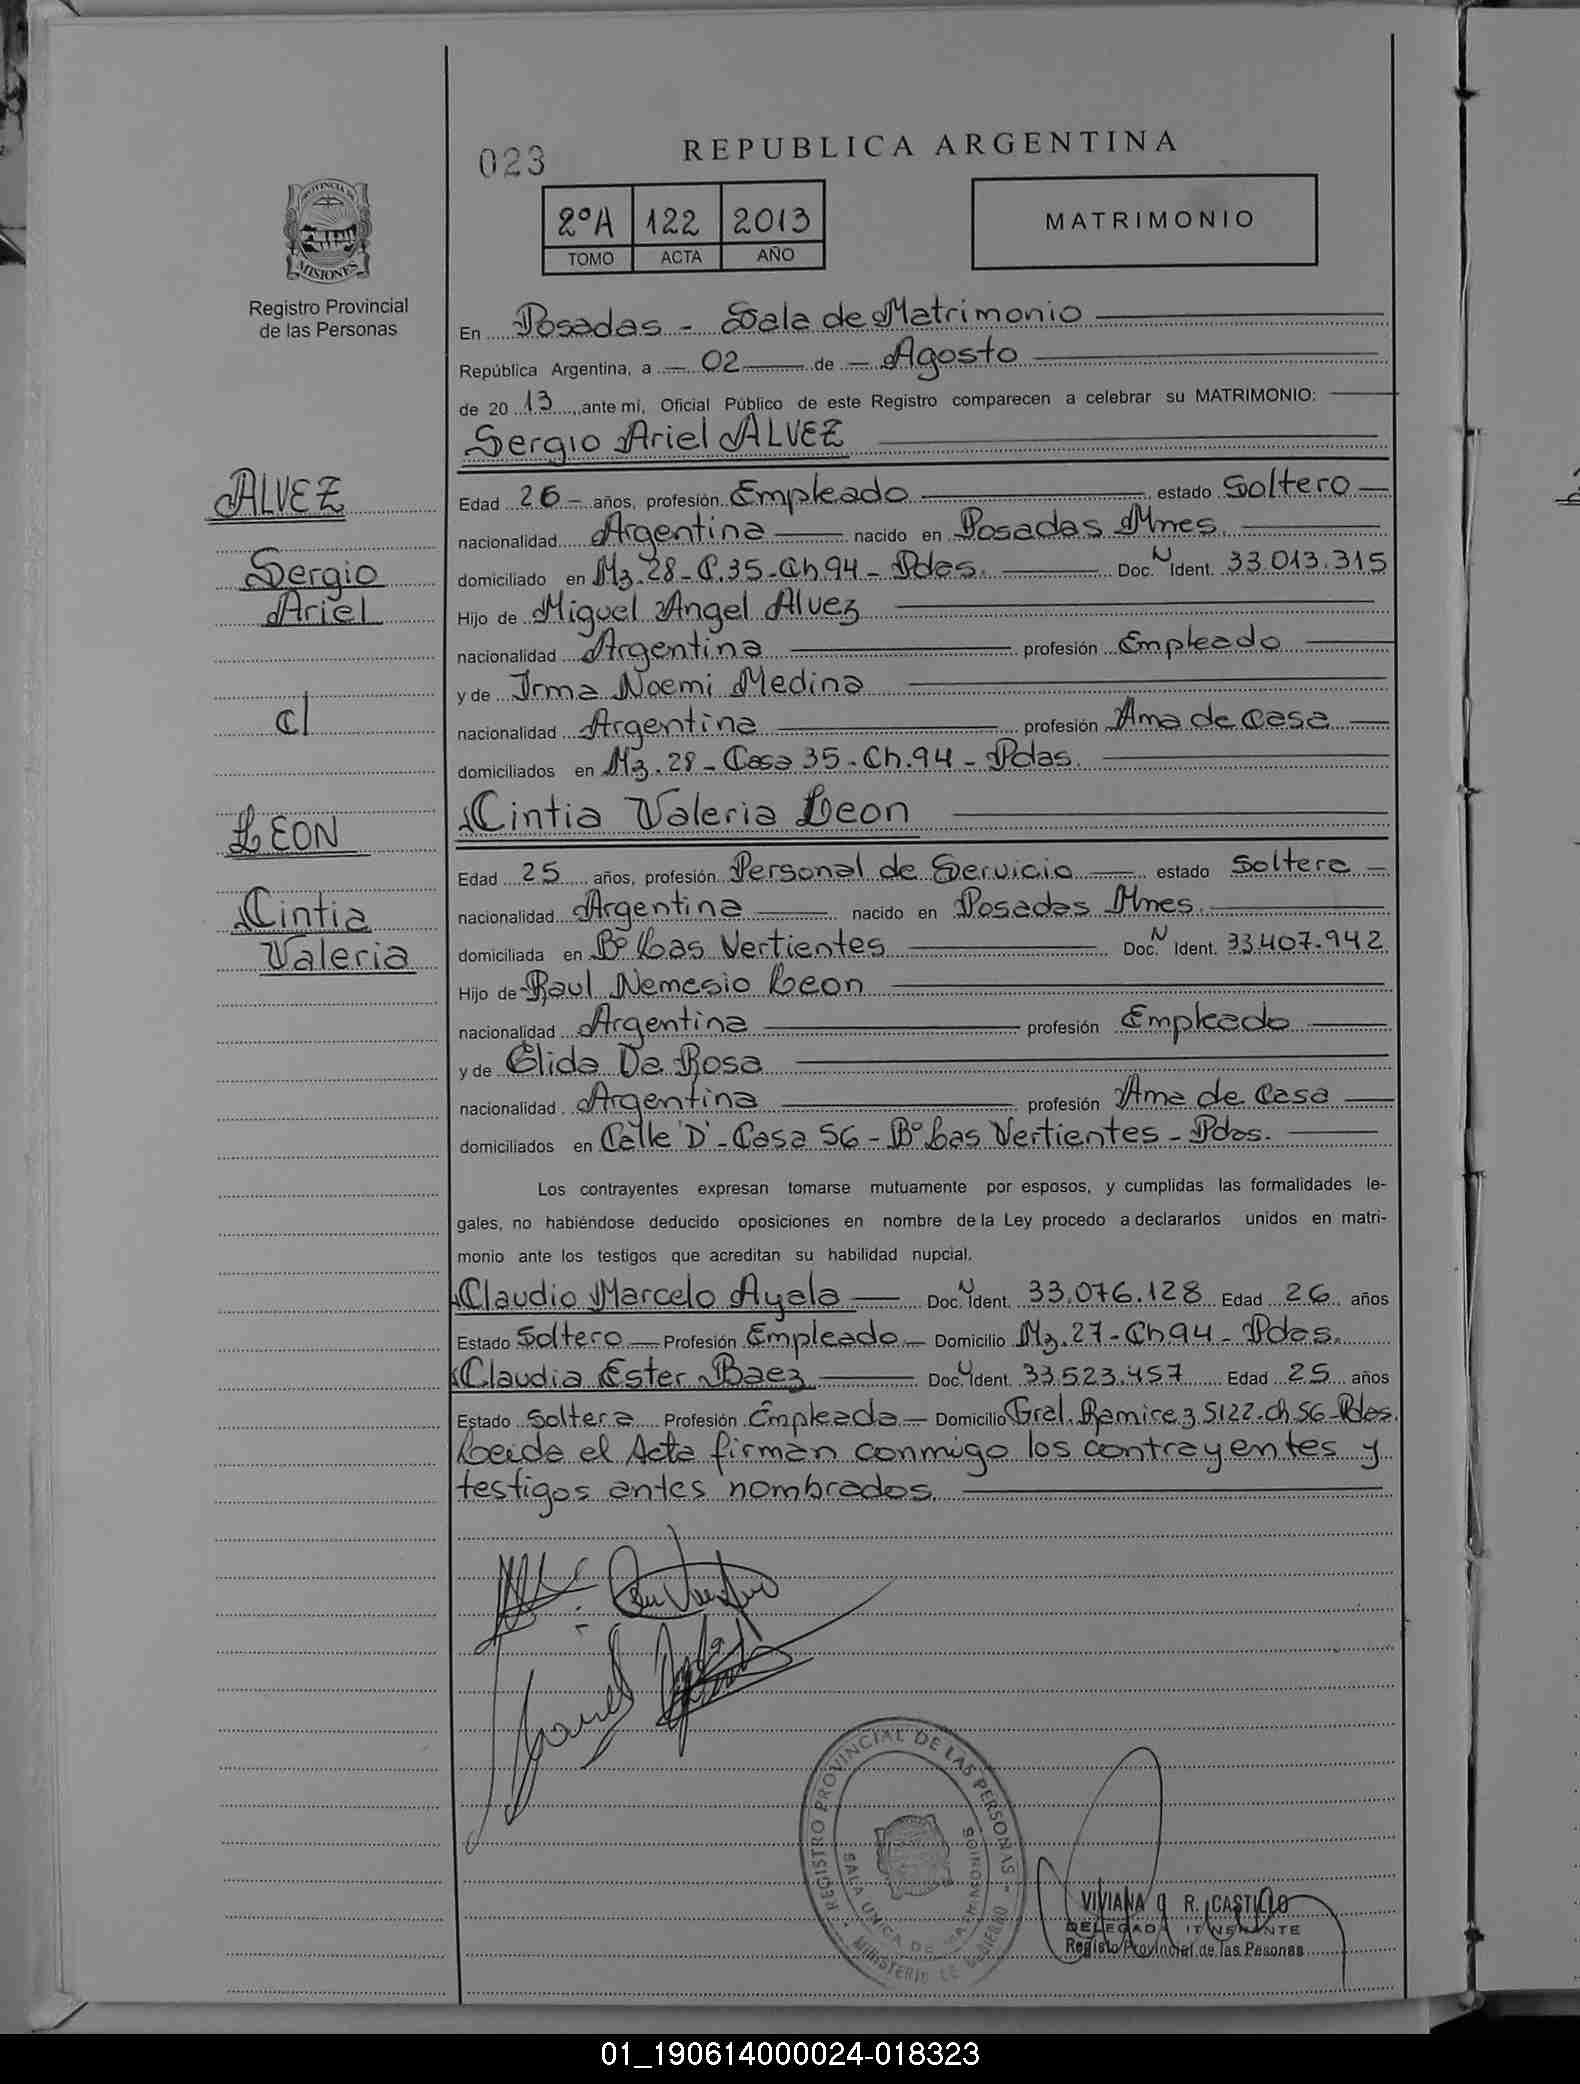 023
REPUBLICA ARGENTINA
2ºA 122 2013
TOMO ACTA AÑO
MATRIMONIO
PROVINCIA DE
MISIONES
Registro Provincial
de las Personas
En Posadas - Sala de Matrimonio
República Argentina, a 02 de Agosto
de 20 13 ante mi, Oficial Público de este Registro comparecen a celebrar su MATRIMONIO:
Sergio Ariel ALVEZ
ALVEZ
Sergio
Ariel
c/
LEON
Cintia
Valeria
Edad 26 - años, profesión Empleado estado Soltero
nacionalidad Argentina nacido en Posadas Mnes.
domiciliado en Mz.28-C.35-Ch94-Pdas. Doc. N Ident. 33.013.315
Hijo de Miguel Angel Alvez
nacionalidad Argentina profesión Empleado
y de Irma Noemi Medina
nacionalidad Argentina profesión Ama de Casa
domiciliados en Mz.28-Casa 35-Ch.94-Pdas.
Cintia Valeria Leon
Edad 25 años, profesión Personal de Servicio estado Soltera
nacionalidad Argentina nacido en Posadas Mnes.
domiciliada en Bº Las Vertientes Doc. N Ident. 33.407.942
Hijo de Raul Nemesio Leon
nacionalidad Argentina profesión Empleado
y de Elida Da Rosa
nacionalidad Argentina profesión Ama de Casa
domiciliados en Calle 'D'-Casa 56-Bº Las Vertientes-Pdas.
Los contrayentes expresan tomarse mutuamente por esposos, y cumplidas las formalidades le-
gales, no habiéndose deducido oposiciones en nombre de la Ley procedo a declararlos unidos en matri-
monio ante los testigos que acreditan su habilidad nupcial.
Claudio Marcelo Ayala Doc. N Ident. 33.076.128 Edad 26 años
Estado Soltero Profesión Empleado Domicilio Mz.27-Ch94-Pdas.
Claudia Ester Baez Doc. N Ident. 33.523.457 Edad 25 años
Estado Soltera Profesión Empleada Domicilio Gral. Ramirez 5122-Ch 56-Pdas.
Leida el Acta firman conmigo los contrayentes y
testigos antes nombrados.
REGISTRO PROVINCIAL DE LAS PERSONAS
SALA UNICA DE MATRIMONIOS
MINISTERIO DE GOBIERNO
VIVIANA G R. CASTILLO
DELEGADA ITINERANTE
Registo Provincial de las Pesonas
01_190614000024-018323